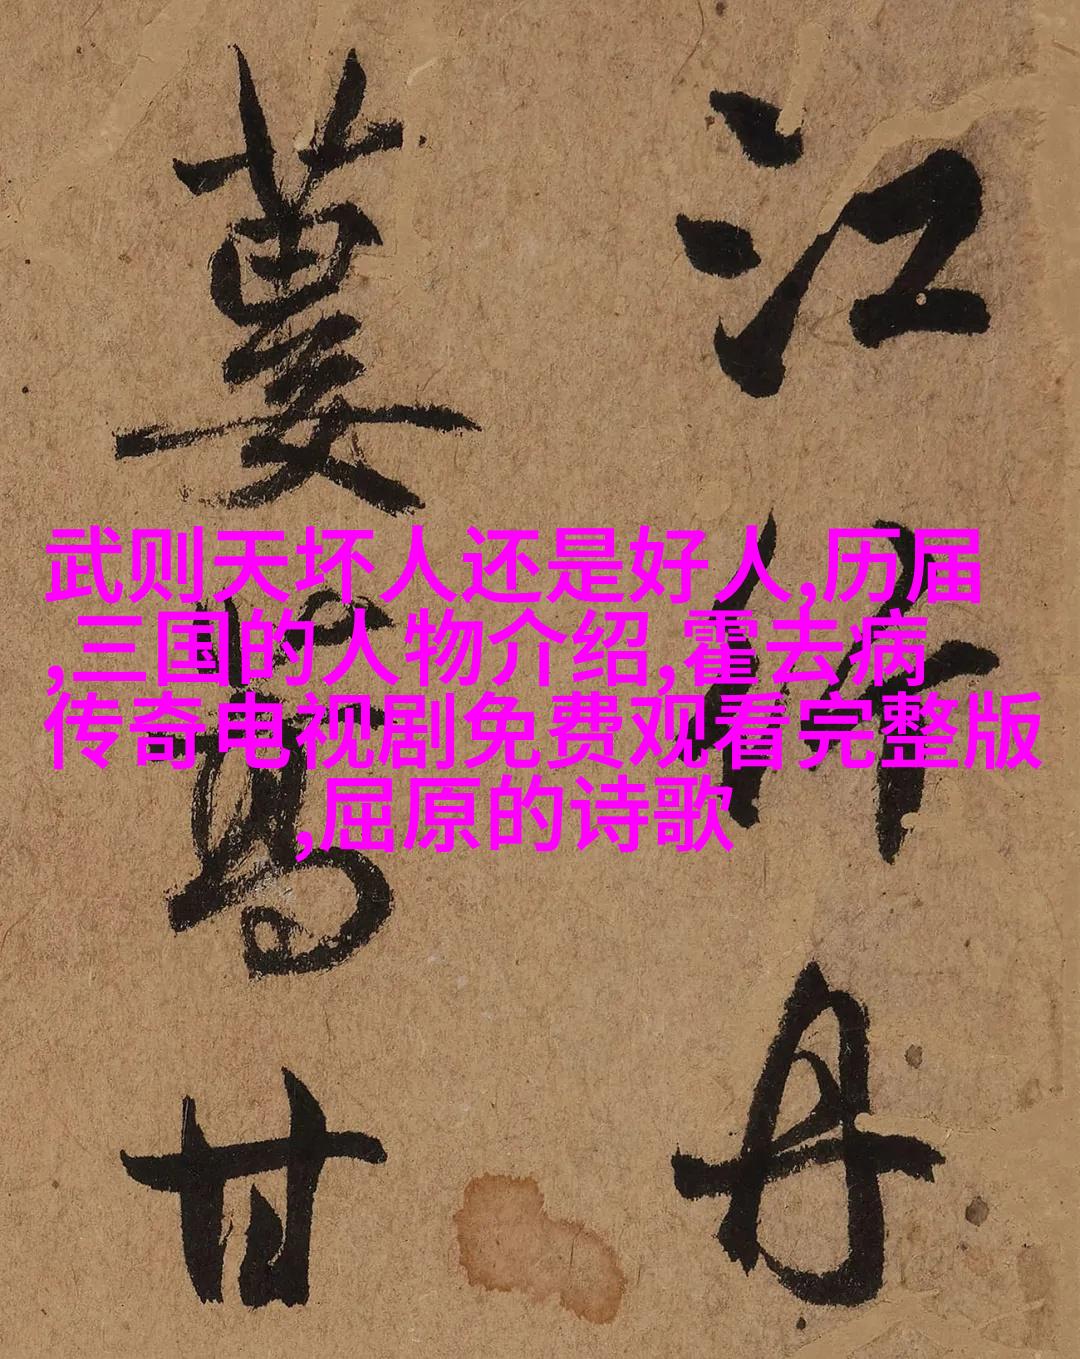 武则天坏人还是好人,历届
,三国的人物介绍,霍去病
传奇电视剧免费观看完整版
,屈原的诗歌
江丹
蔞甘